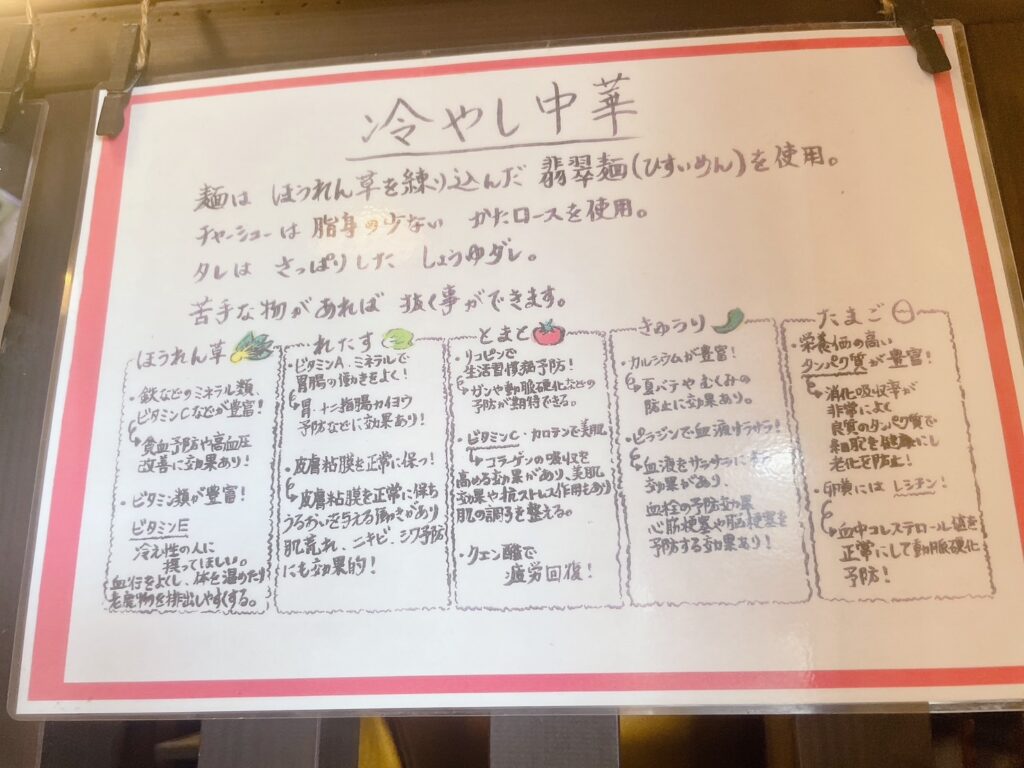 冷やし中華
麺は ほうれん草を練り込んだ 翡翠麺(ひすいめん)を使用。
チャーシューは 脂身の少ない かたロースを使用。
タレは さっぱりした しょうゆダレ。
苦手な物があれば 抜く事ができます。
ほうれん草
・鉄などのミネラル類、
ビタミンCなどが豊富!
貧血予防や高血圧
改善に効果あり!
・ビタミン類が豊富!
ビタミンE
冷え性の人に
摂ってほしい。
血行をよくし、体を温めたり
老廃物を排出しやすくする。
れたす
・ビタミンA、ミネラルで
胃腸の働きをよく!
胃・十二指腸カイヨウ
予防などに効果あり!
・皮膚粘膜を正常に保つ!
皮膚粘膜を正常に保ち
うるおいを与える働きがあり
肌荒れ、ニキビ、シワ予防
にも効果的!
とまと
・リコピンで
生活習慣病予防!
ガンや動脈硬化などの
予防が期待できる。
・ビタミンC・カロテンで美肌
コラーゲンの吸収を
高める効果があり、美肌
効果や抗ストレス作用もあり
肌の調子を整える。
・クエン酸で
疲労回復!
きゅうり
・カルシウムが豊富!
夏バテやむくみの
防止に効果あり。
・ピラジンで血液サラサラ!
血液をサラサラに
効果があり、
血栓の予防効果
心筋梗塞や脳梗塞を
予防する効果あり!
たまご
・栄養価の高い
タンパク質が豊富!
消化吸収率が
非常によく
良質のタンパク質で
細胞を健康にし
老化を防止!
・卵黄には レシチン!
血中コレステロール値を
正常にして動脈硬化
予防!